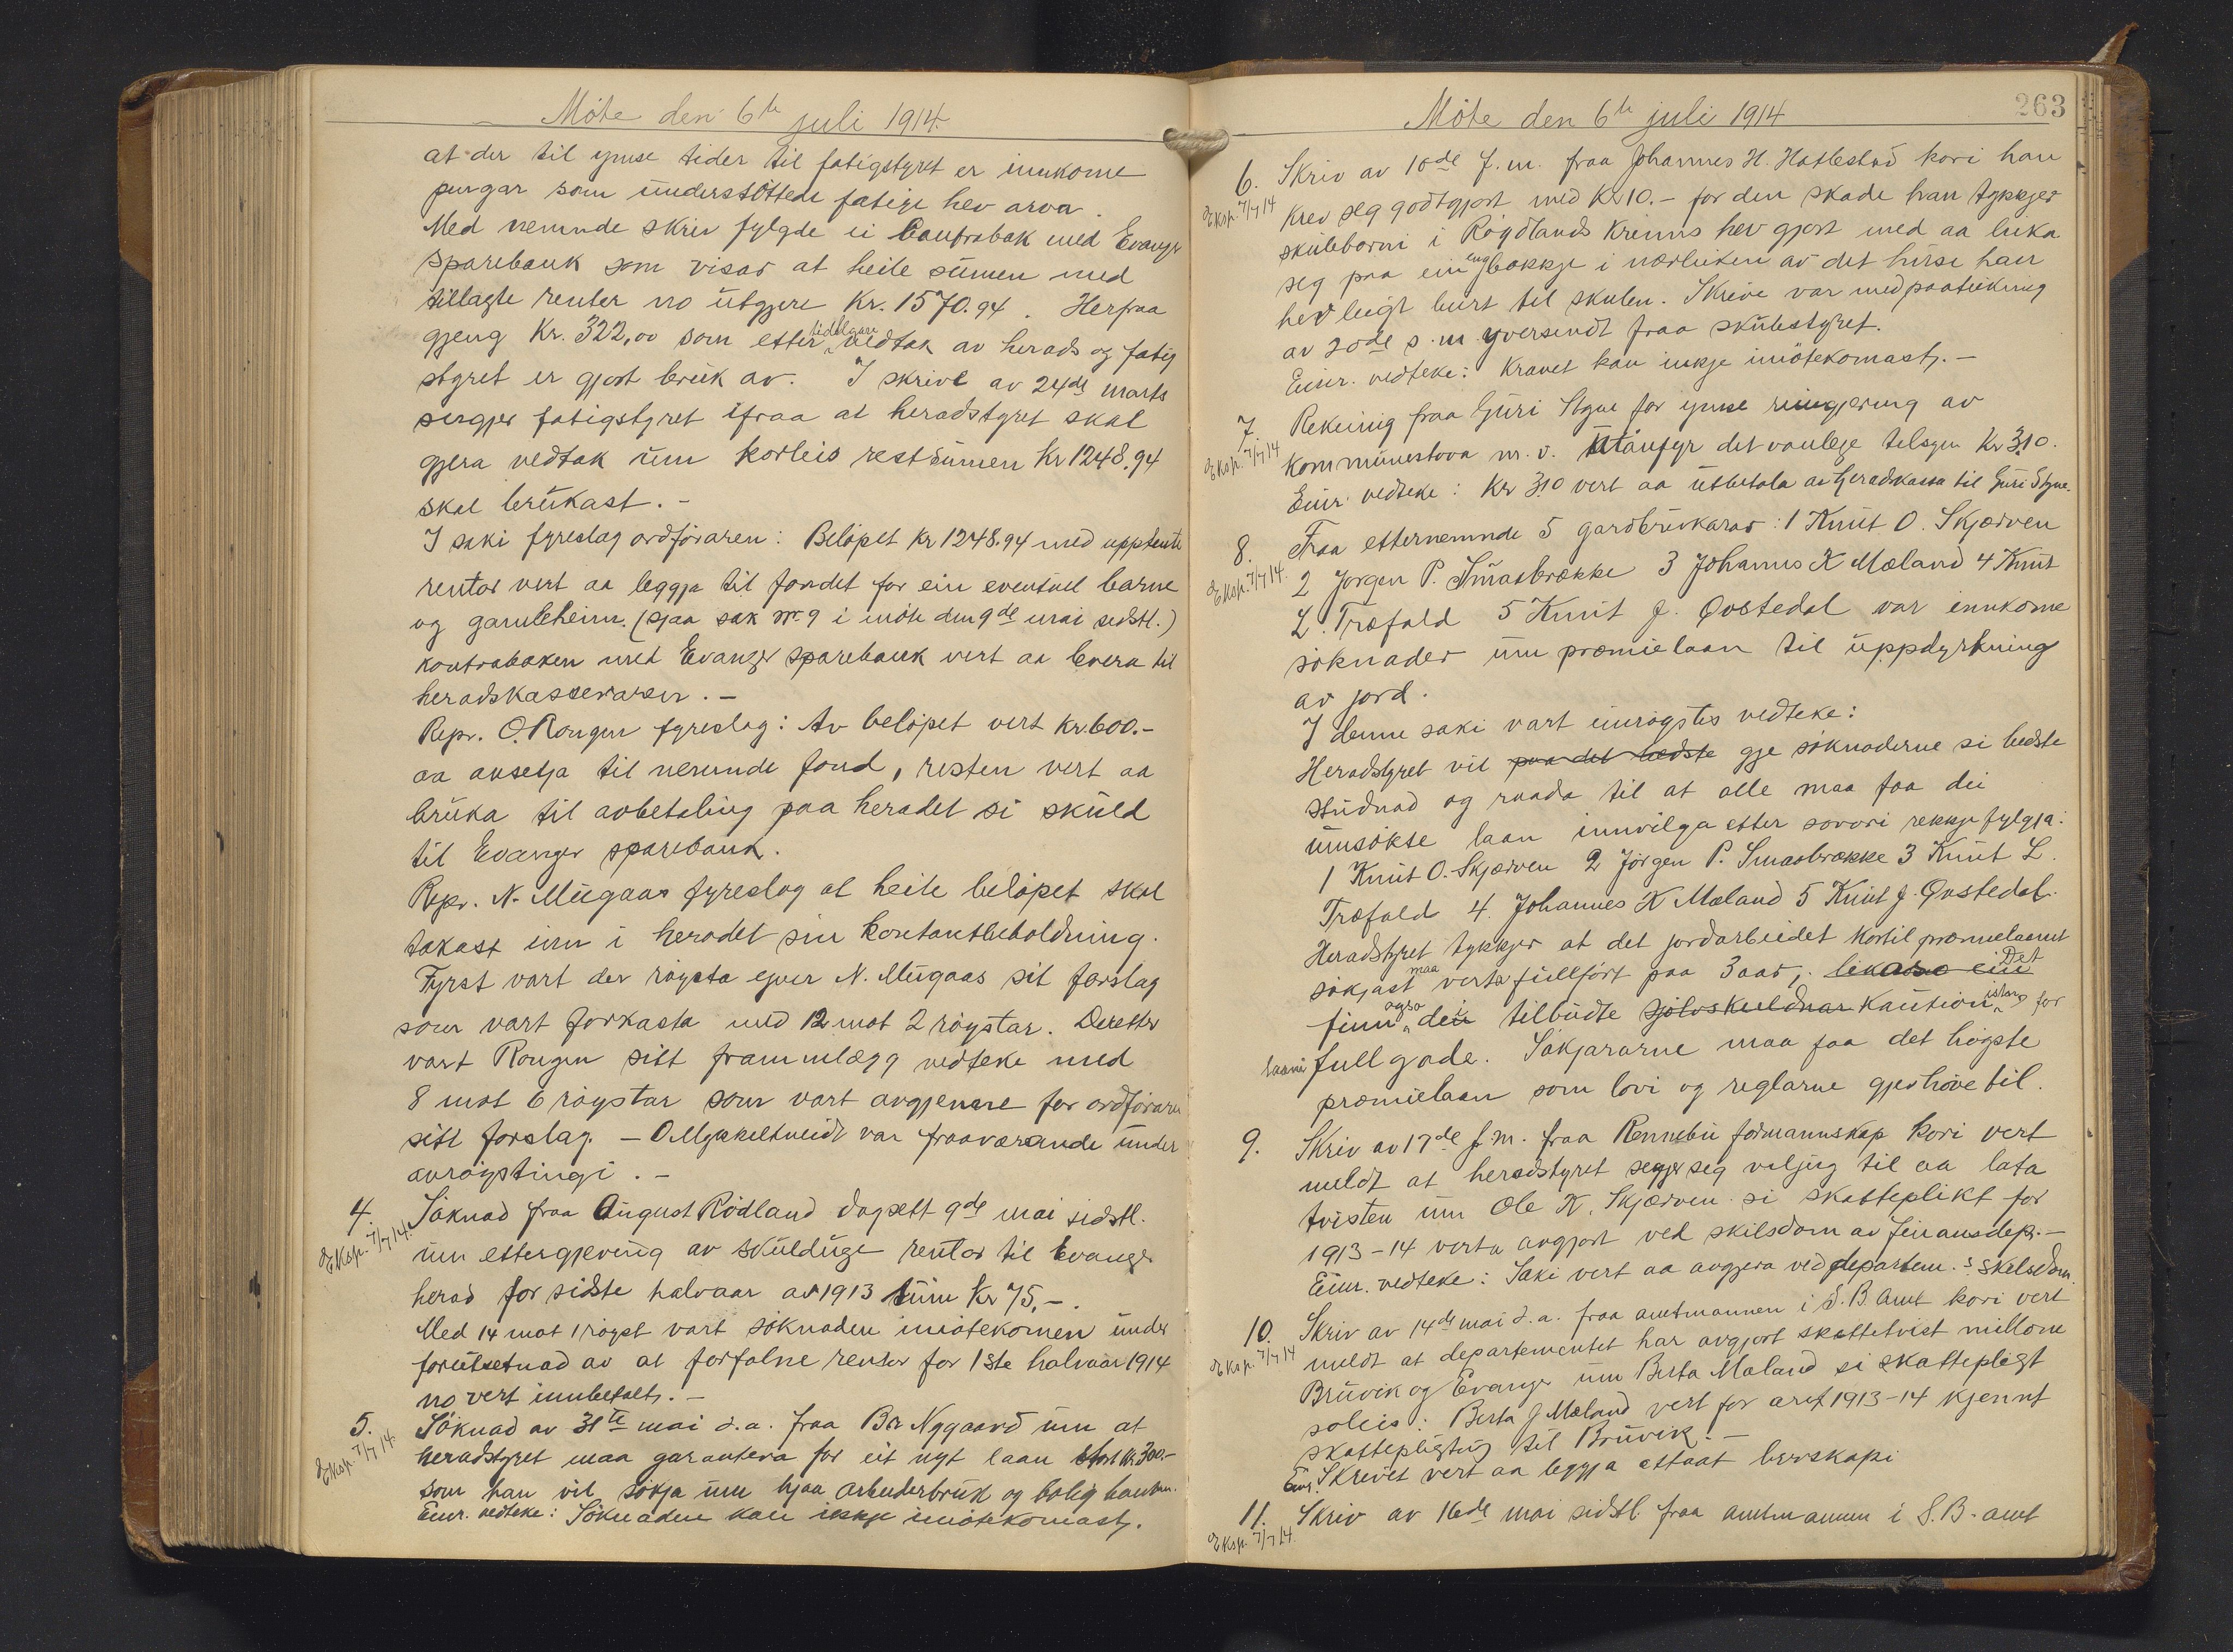 Möte den 6te juli 1914.
at der til ymse tider til fatigstyret er innkome
pengar som understöttede fatige hev arva.
Med nemnde skriv fylgde ei Contrabok med Evanger
Sparebank som visar at heile sumen med
tillagte renter no utgjere Kr. 1570.94. Herfraa
gjeng Kr. 322,00 som etter tidlegare vedtak av herads og fatig
styret er gjort bruk av. I skrive av 24de marts
spegjer fatigstyret ifraa at heradstyret skal
gjera vedtak um korleis restsumen Kr 1248.94
skal brukast.-
I saki fyreslog ordföraren: Belöpet Kr 1248.94 med upptente
rentor vert aa leggja til fondet for ein eventuel barne
og gamleheim. (Sjaa sak nr. 9 i möte den 9de mai sidstl.)
kontraboken med Evanger sparebank vert aa levera til
heradskasseraren.-
Repr. O. Rongen fyreslog: Av belöpet vert Kr. 600.-
aa avsetja til nemnde fond, resten vert aa
bruka til avbetaling paa heradet si skuld
til Evanger sparebank.
Repr. N. Mugaas fyreslog at heile belöpet skal
takast inn i heradet sin kontantbeholdning.
Fyrst vart der röysta yver N. Mugaas sit forslag
som vart forkasta med 12 mot 2 röystar. Deretter
vart Rongen sitt frammlegg vedteke med
8 mot 6 röystar som vart avgjevne for ordföraren
sitt forslag. - O Mykeltveidt var fraaverande under
avröystingi.-
4. Söknad fraa August Rödland dagsett 9de mai sidstl.
Eksp. 7/7 14.
um ettergjeving av skulduge rentor til Evanger
herad for sidste halvaar av 1913 sum Kr 75,-.
Med 14 mot 1 röyst vart söknaden imötekomen under
foreutsetnad av at forfalne rentor for 1ste halvaar 1914
no vert innbetalt.-
5. Söknad av 31te mai d.a. fraa Br. Nygaard um at
Eksp. 7/7 14.
heradstyret maa garantera for eit nytt laan stort Kr. 300.-
som han vil sökja um hjaa arbeiderbruk og bolig banken.
Einr. vedteke: Söknaden kan ikkje imötekomast.
Möte den 6te juli 1914
263
6. Skriv av 10de f.m. fraa Johannes H. Hatlestad kori han
Eksp. 7/7 14
krev seg godtgjort med Kr 10.- for den skade han tykkjer
skuleborni i Röydlands Krinns hev gjort med aa luka
seg paa ein eng bakkje i nærleiken av det huse han
hev leigt burt til skulen. Skrive var med paateikning
av 20de s.m yversendt fraa skulestyret.
Einr. vedteke: Kravet kan inkje imötekomast.-
7. Rekning fraa Guri Styve for ymse reingjering av
Eksp. 7/7 14
Kommunestova m.v. utanfyr det vanlege tilsyn Kr 3.10.
Einr. vedteke: Kr 3.10 vert aa utbetala av heradkassa til Guri Styve.
8. Fraa etternemnde 5 gardbrukarar: 1 Knut O. Skjerven
Eksp. 7/7 14.
2 Jorgen P. Smaabrekke 3 Johannes K Mæland 4 Knut
L. Træfald 5 Knut J. Qvstedal var innkome
söknader um premielaan til uppdyrkning
av jord.
I denne saki vart einröystes vedteke:
Heradstyret vil paa det bedste gje söknaderne si bedste
studnad og raada til at alle maa faa dei
umsökte laan innvilga etter sovori rekkjefylgja:
1 Knut O. Skjerven 2 Jörgen P. Smaabrekke 3 Knut L.
Træfald 4. Johannes K Mæland 5 Knut J. Qvstedal.
Heradstyret tykkjer at det jordarbeidet kortil premielaanet
sökjast maa verta fullfört paa 3 aar;. likaso ein Det
finn ogso dei tilbudte sjölvskuldnar kautionistar for
laani fullgode. Sökjararne maa faa det högste
premielaan som lovi og reglarne gjev höve til.
9. Skriv av 17de f.m. fraa Rennebu formannskap kori vert
meldt at heradstyret segjer seg viljug til aa lata
tvisten um Ole K. Skjerven si skatteplikt for
1913-14 verta avgjort ved skilsdom av finansdep.-
Einr. vedteke: Saki vert aa avgjera ved departem.s skilsdom.
10. Skriv av 14de mai d.a. fraa amtmannen i S.B. Amt kori vert
Eksp. 7/7 14
meldt at departementet har avgjort skattetvist millom
Bruvik og Evanger um Berta Mæland si skattepligt
soleis: Berta J Mæland vert for aret 1913-14 kjennt
skattepligtig til Bruvik.-
Einr. Skrivet vert aa leggja attaat bevskapi
11. Skriv av 16de mai sidstl. fraa amtmannen i S.B. amt
Eksp. 7/7 14.